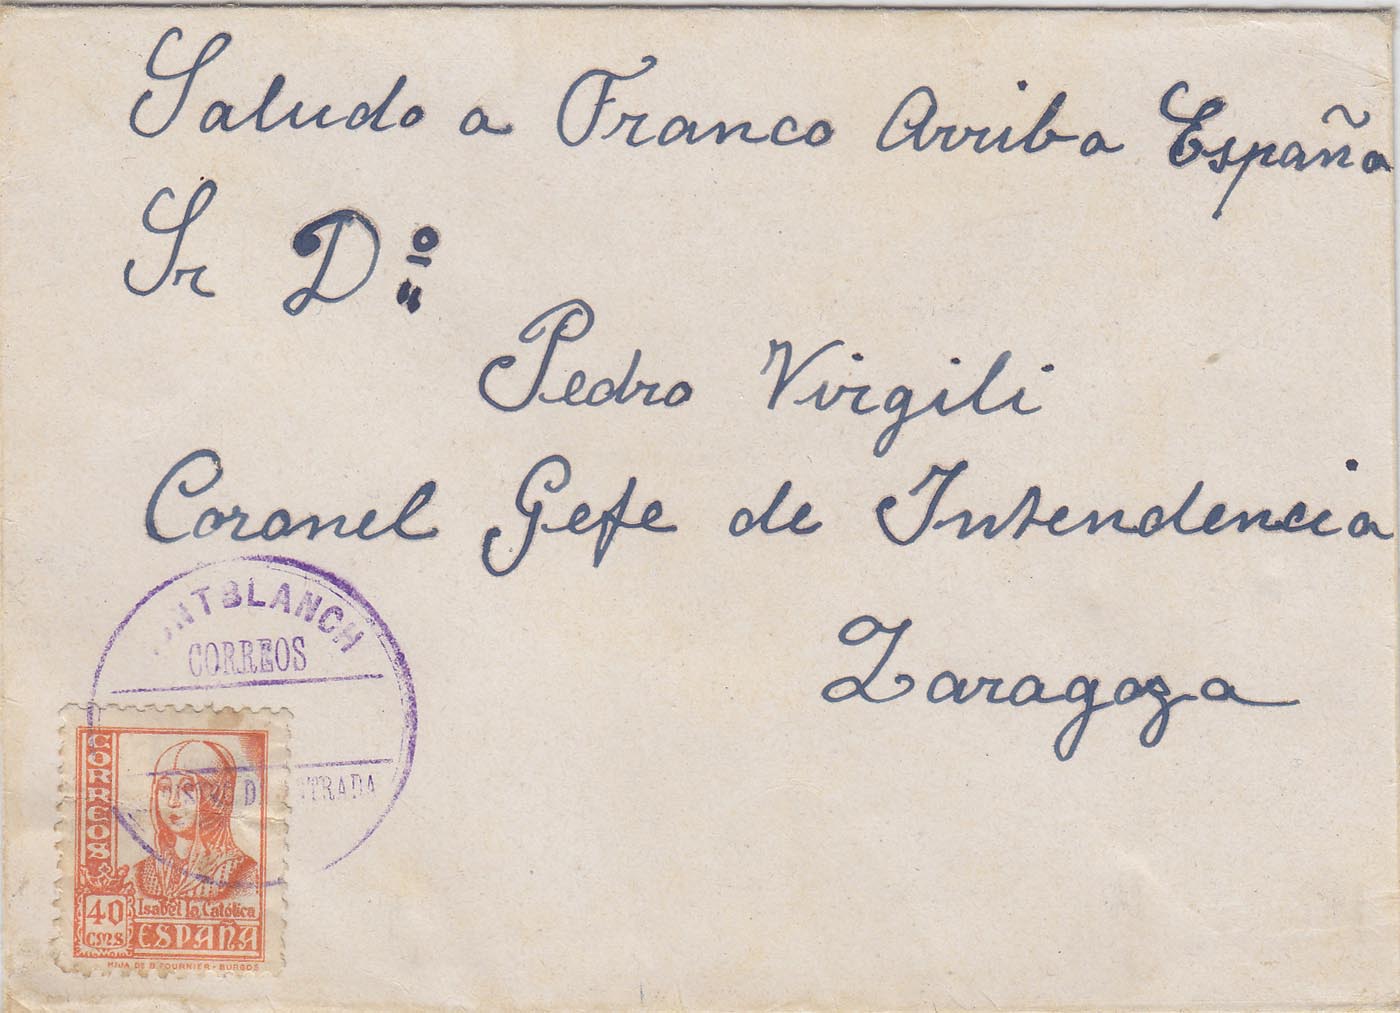 Saludo a Franco Arriba España
Sr Dº
Pedro Virgili
Coronel Gefe de Intendencia
Zaragoza
CORREOS
CORREOS
40
CMS
Isabel la Católica
ESPAÑA
HIJA DE B. FOURNIER - BURGOS